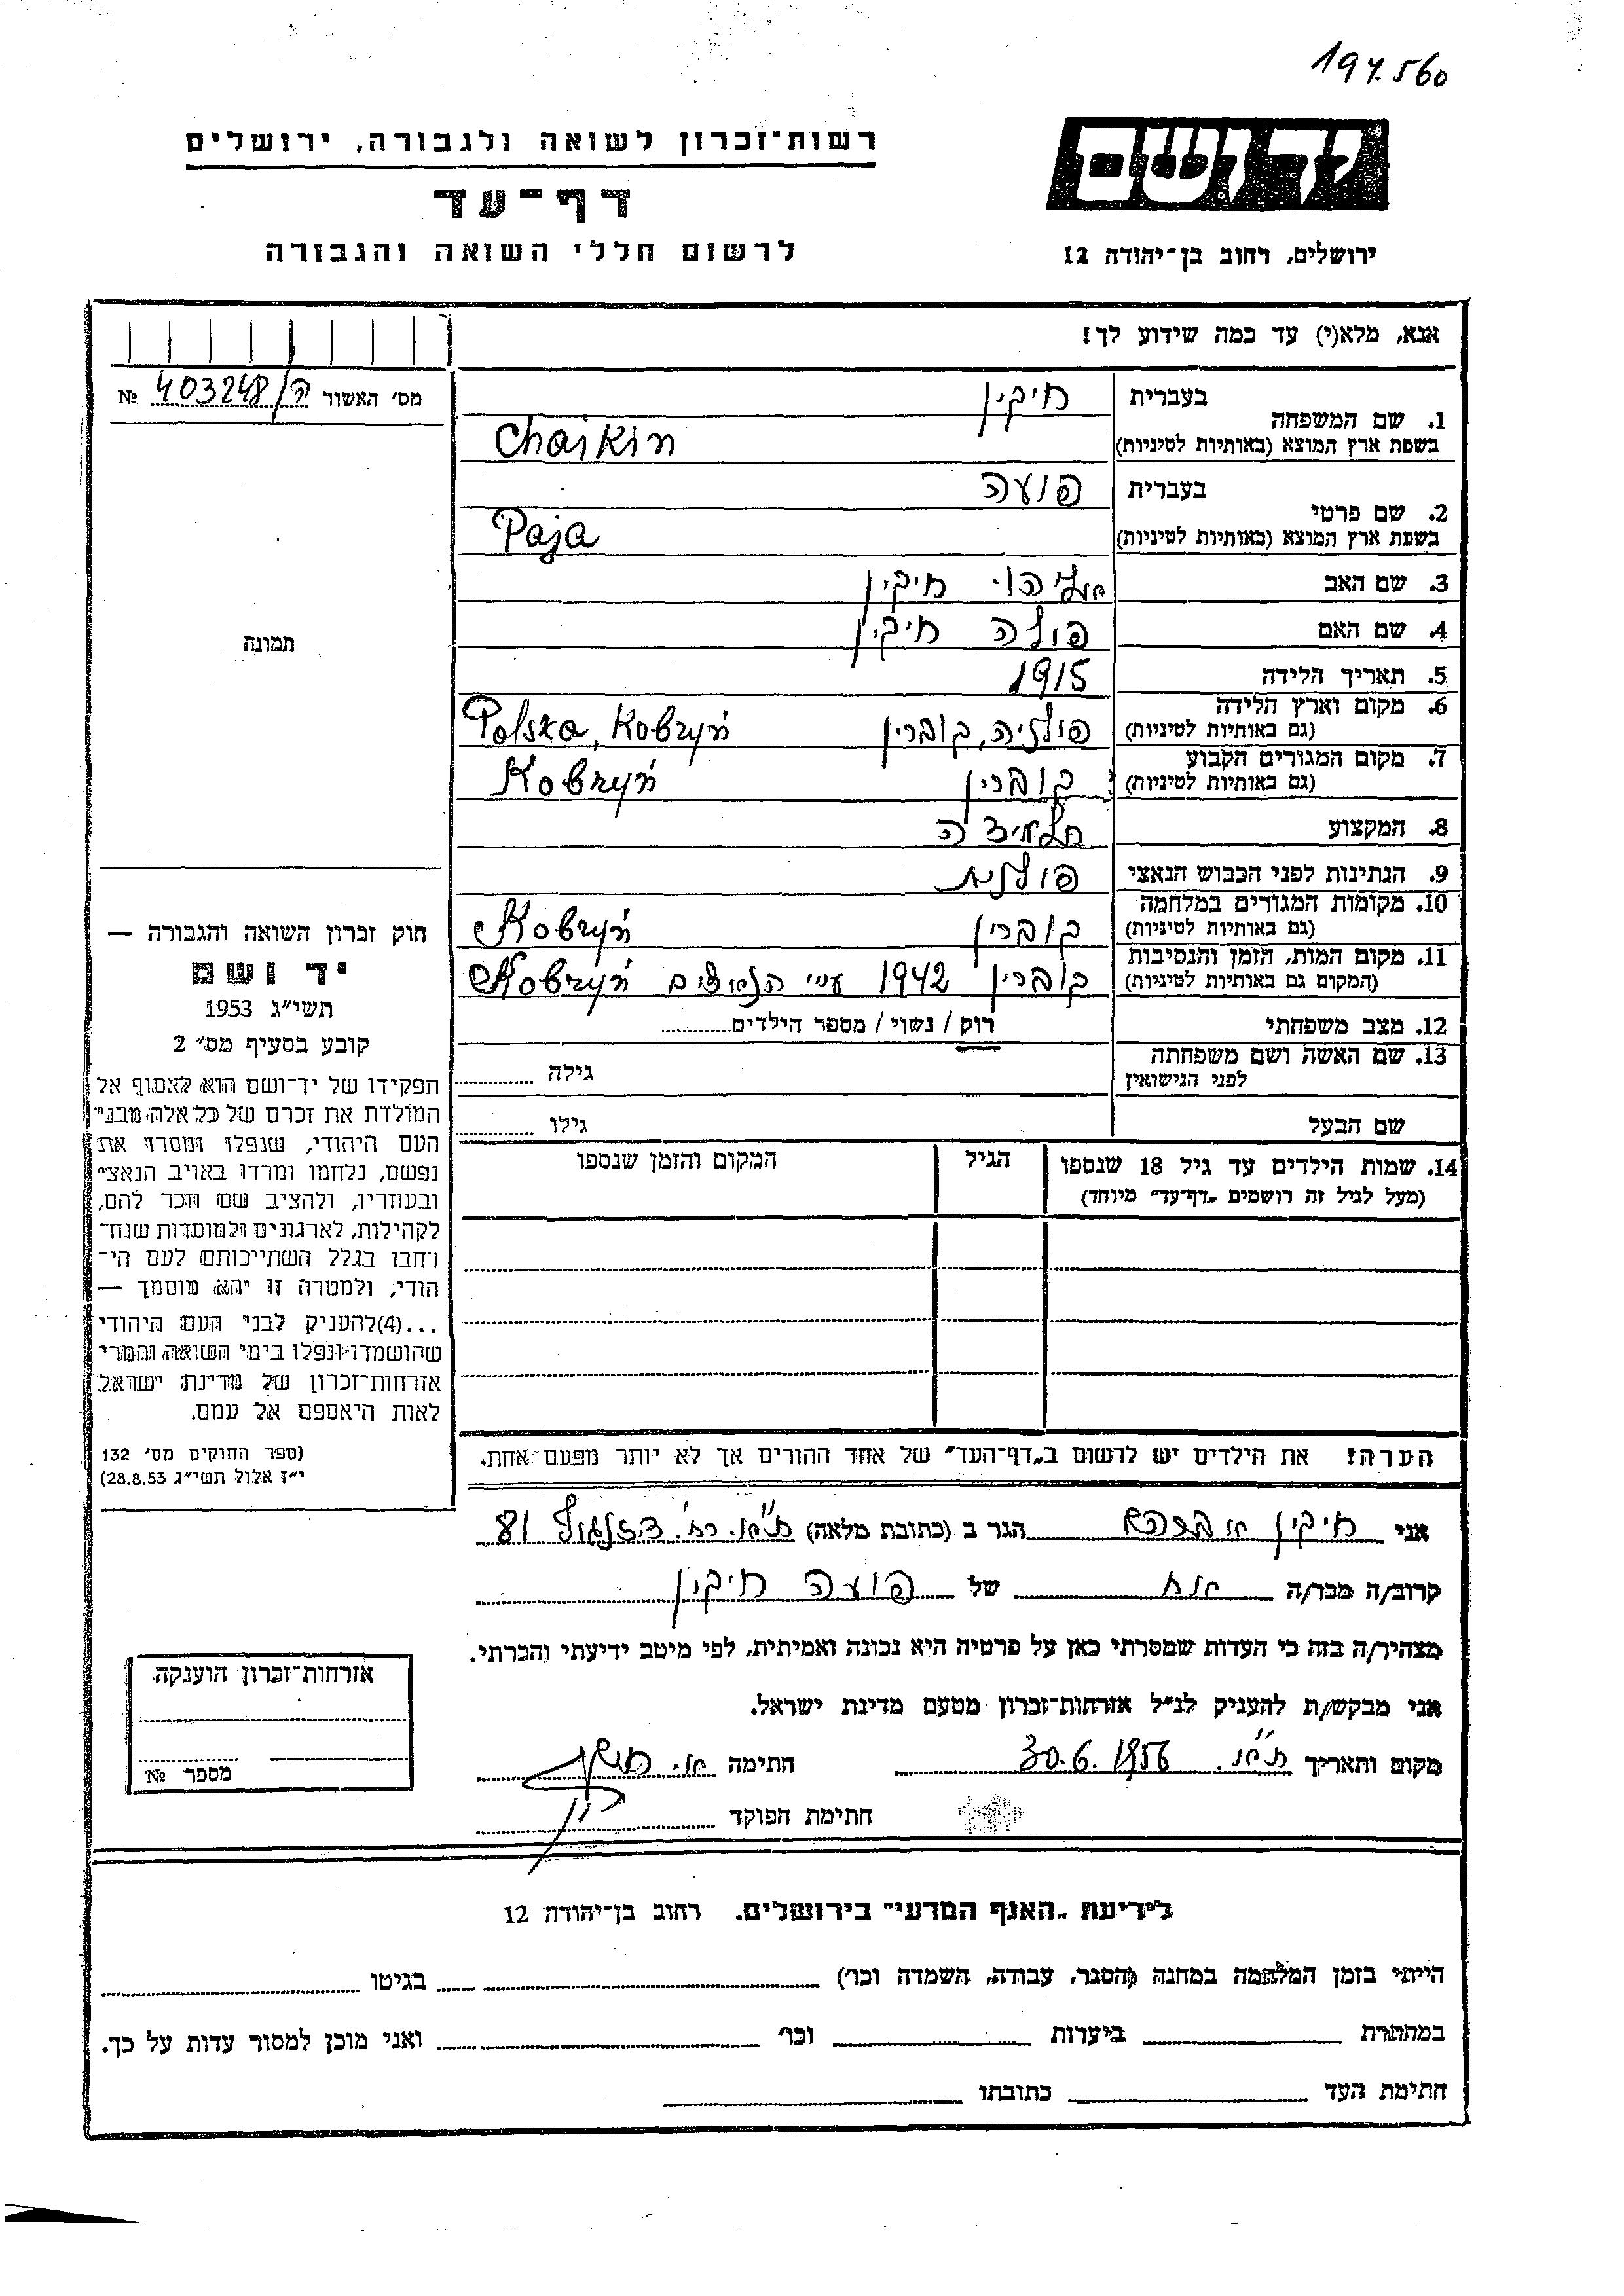 194.560
רשות־זכרון לשואה ולגבורה, ירושלים
יד ושם
דף־עד
לרשום חללי השואה והגבורה
ירושלים, רחוב בן־יהודה 12
אנא, מלא(י) עד כמה שידוע לך!
מס' האשור ה/403248 №
1. שם המשפחה
בעברית חיקין
בשפת ארץ המוצא (באותיות לטיניות) Chaikin
2. שם פרטי
בעברית פועה
בשפת ארץ המוצא (באותיות לטיניות) Paja
3. שם האב אליהו חיקין
4. שם האם פולה חיקין
5. תאריך הלידה 1915
6. מקום וארץ הלידה
(גם באותיות לטיניות) פולניה, קוברין Polska, Kobryń
7. מקום המגורים הקבוע
(גם באותיות לטיניות) קוברין Kobryń
8. המקצוע תלמידה
9. הנתינות לפני הכבוש הנאצי פולנית
10. מקומות המגורים במלחמה
(גם באותיות לטיניות) קוברין Kobryń
11. מקום המות, הזמן והנסיבות
(המקום גם באותיות לטיניות) קוברין 1942 ע"י הנאצים Kobryń
12. מצב משפחתי רוק / נשוי / מספר הילדים
13. שם האשה ושם משפחתה
לפני הנישואין
גילה
שם הבעל גילו
14. שמות הילדים עד גיל 18 שנספו הגיל המקום והזמן שנספו
(מעל לגיל זה רושמים „דף־עד" מיוחד)
הערה! את הילדים יש לרשום ב„דף־העד" של אחד ההורים אך לא יותר מפעם אחת.
תמונה
חוק זכרון השואה והגבורה —
יד ושם
תשי"ג 1953
קובע בסעיף מס' 2
תפקידו של יד־ושם הוא לאסוף אל
המולדת את זכרם של כל אלה מבני
העם היהודי, שנפלו ומסרו את
נפשם, נלחמו ומרדו באויב הנאצי
ובעוזריו, ולהציב שם וזכר להם,
לקהילות, לארגונים ולמוסדות שנח־
רחבו בגלל השתייכותם לעם הי־
הודי, ולמטרה זו יהא מוסמך —
...(4)להעניק לבני העם היהודי
שהושמדו ונפלו בימי השואה והמרי
אזרחות־זכרון של מדינת ישראל
לאות היאספם אל עמם.
(ספר החוקים מס' 132
י"ז אלול תשי"ג 28.8.53)
אני חיקין אברהם הגר ב (כתובת מלאה) ת"א. רח' 81
קרוב/ה מכר/ה אח של פועה חיקין
מצהיר/ה בזה כי העדות שמסרתי כאן על פרטיה היא נכונה ואמיתית, לפי מיטב ידיעתי והכרתי.
אני מבקש/ת להעניק לנ"ל אזרחות־זכרון מטעם מדינת ישראל.
מקום ותאריך ת"א. 30.6.1956 חתימה
חתימת הפוקד
אזרחות־זכרון הוענקה
מספר №
לידיעת „האגף המדעי" בירושלים. רחוב בן־יהודה 12
הייתי בזמן המלחמה במחנה (הסגר, עבודה, השמדה וכו') בגיטו
במחתרת ביערות וכו' ואני מוכן למסור עדות על כך.
חתימת העד כתובתו